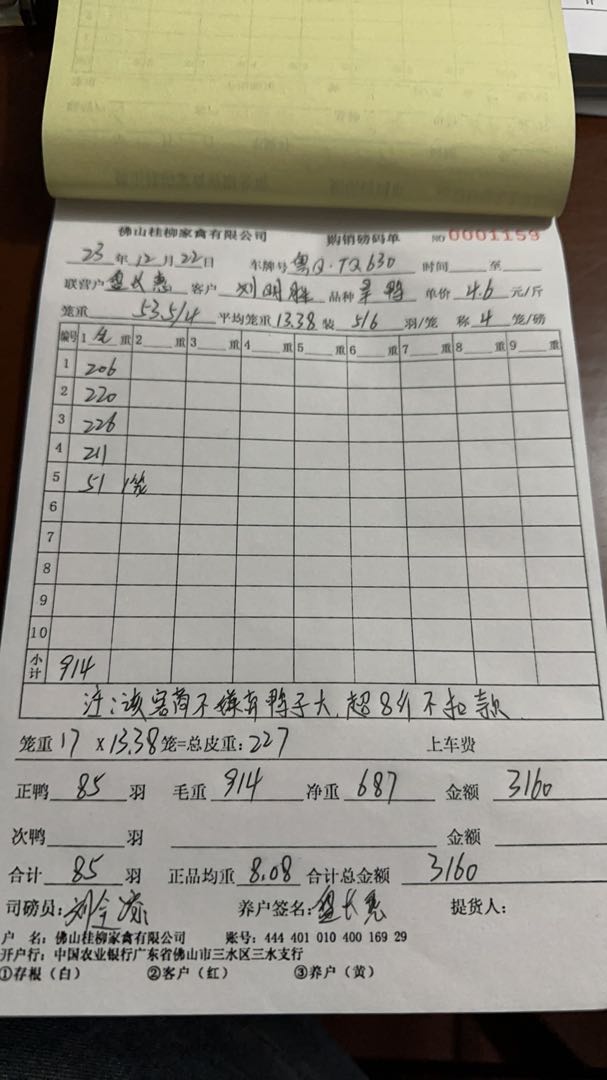 佛山桂柳家禽有限公司 购销磅码单 NO 0001159
23 年 12 月 22 日 车牌号 粤Q·TQ630 时间 至
联营户 客户 刘明胜 品种 单价 4.6 元/斤
笼重 53.5/4 平均笼重 13.38 装 5/6 羽/笼 称 4 笼/磅
编号 1 重 2 重 3 重 4 重 5 重 6 重 7 重 8 重 9 重
1 206
2 220
3 226
4 211
5 51 1笼
6
7
8
9
10
小计 914
注:该客商不嫌弃鸭子大,超8斤不扣款
笼重 17 x13.38 笼=总皮重: 227 上车费
正鸭 85 羽 毛重 914 净重 687 金额 3160
次鸭 羽 金额
合计 85 羽 正品均重 8.08 合计总金额 3160
司磅员: 养户签名: 提货人:
户 名: 佛山桂柳家禽有限公司 账号: 444 401 010 400 169 29
开户行: 中国农业银行广东省佛山市三水区三水支行
①存根(白) ②客户(红) ③养户(黄)